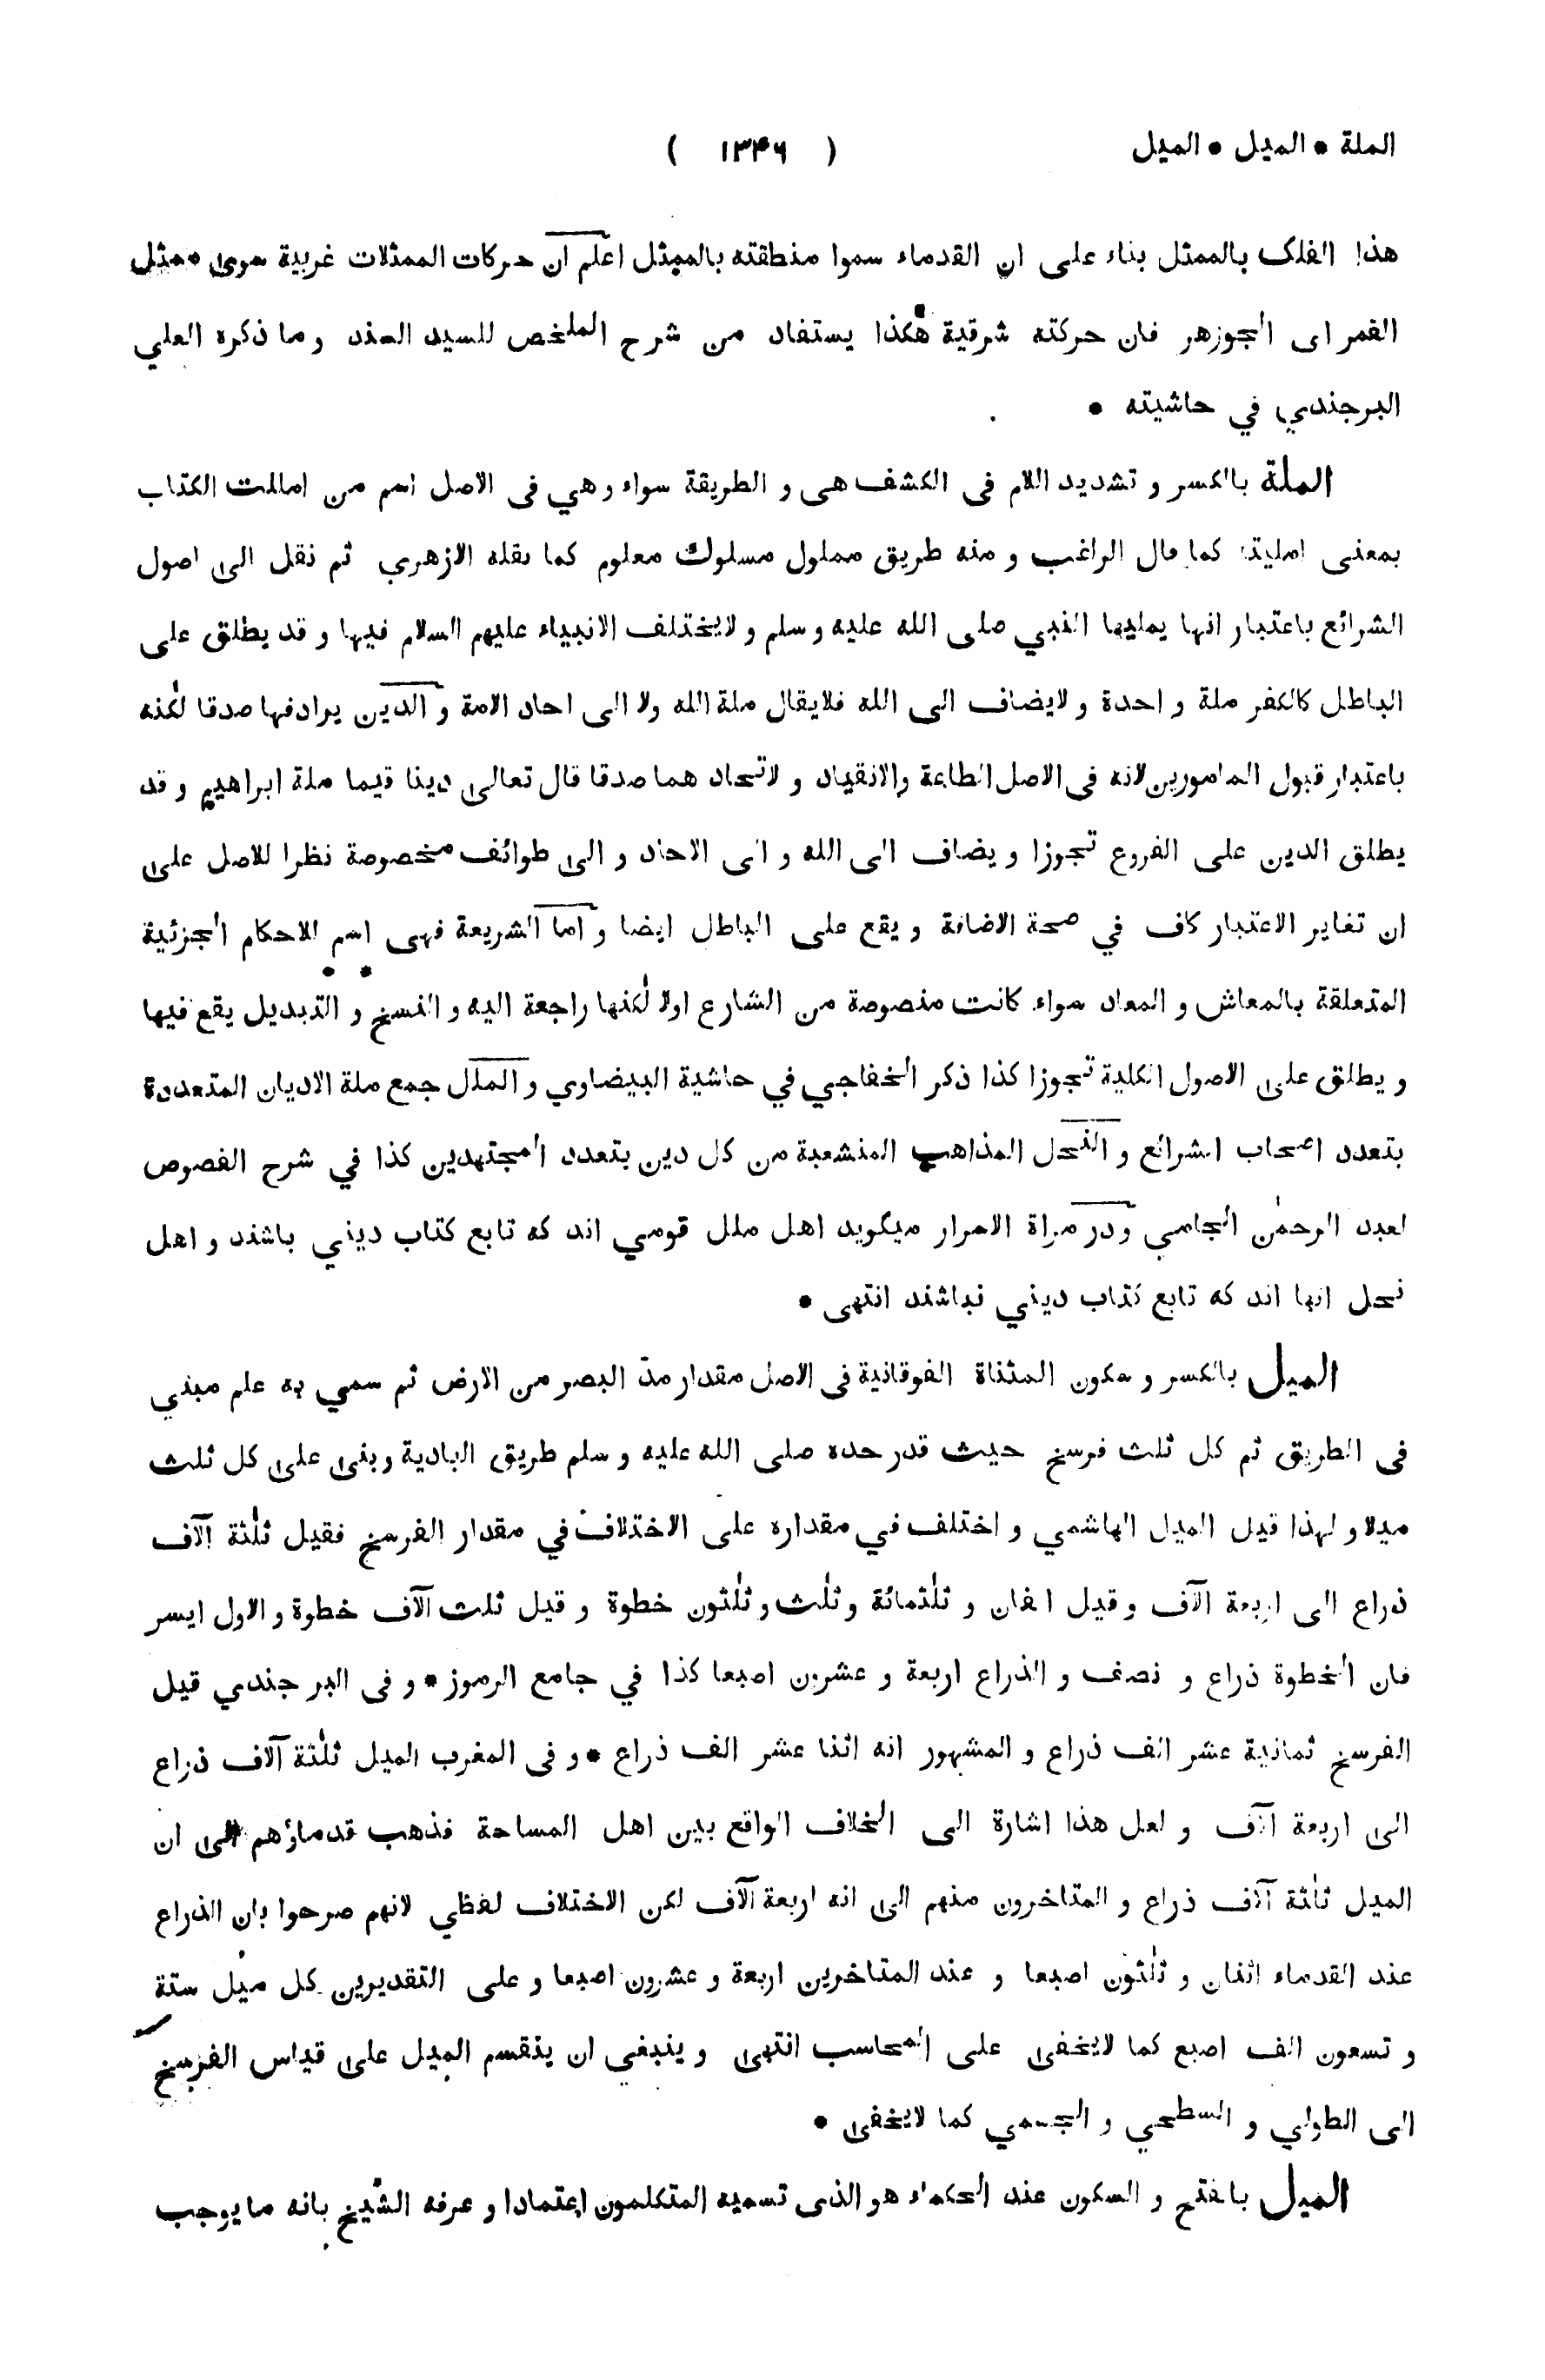 الملة * الميل * الميل ( ١٣٤٦ )
هذا الفلك بالممثل بناء على ان القدماء سموا منطقته بالممثل اعلم ان حركات الممثلات غربية سوى ممثل
القمر اى الجوزهر فان حركته شرقية هكذا يستفاد من شرح الملخص للسيد السند وما ذكره العلي
البرجندي في حاشيته *
الملة بالكسر و تشديد اللام فى الكشف هى و الطريقة سواء وهي فى الاصل اسم من امللت الكتاب
بمعنى امليته كما قال الراغب و منه طريق مملول مسلوك معلوم كما نقله الازهري ثم نقل الى اصول
الشرائع باعتبار انها يمليها النبي صلى الله عليه و سلم و لايختلف الانبياء عليهم السلام فيها و قد يطلق على
الباطل كالكفر ملة واحدة و لايضاف الى الله فلايقال ملة الله ولا الى احاد الامة و الدين يرادفها صدقا لكنه
باعتبار قبول المامورين لانه فى الاصل الطاعة والانقياد و لاتحاد هما صدقا قال تعالى دينا قيما ملة ابراهيم و قد
يطلق الدين على الفروع تجوزا و يضاف الى الله و الى الاحاد و الى طوائف مخصوصة نظرا للاصل على
ان تغاير الاعتبار كاف في صحة الاضافة و يقع على الباطل ايضا و اما الشريعة فهى اسم للاحكام الجزئية
المتعلقة بالمعاش و المعاد سواء كانت منصوصة من الشارع اولا لكنها راجعة اليه و النسخ و التبديل يقع فيها
و يطلق على الاصول الكلية تجوزا كذا ذكر الخفاجي في حاشية البيضاوي و الملل جمع ملة الاديان المتعددة
بتعدد اصحاب الشرائع و النحل المذاهب المنشعبة من كل دين بتعدد المجتهدين كذا في شرح الفصوص
لعبد الرحمٰن الجامي ودر مراة الاسرار ميگويد اهل ملل قومي اند كه تابع كتاب ديني باشند و اهل
نحل انها اند كه تابع كتاب ديني نباشند انتهى *
الميل بالكسر و سكون المثناة الفوقانية فى الاصل مقدار مدّ البصر من الارض ثم سمي به علم مبني
فى الطريق ثم كل ثلث فرسخ حيث قدر حده صلى الله عليه و سلم طريق البادية وبنى على كل ثلث
ميلا و لهذا قيل الميل الهاشمي و اختلف في مقداره على الاختلاف في مقدار الفرسخ فقيل ثلٰثة آلاف
ذراع الى اربعة آلاف و قيل الفان و ثلٰثمائة و ثلٰث و ثلٰثون خطوة و قيل ثلث آلاف خطوة و الاول ايسر
فان الخطوة ذراع و نصف و الذراع اربعة و عشرون اصبعا كذا في جامع الرموز * و فى البر جندي قيل
الفرسخ ثمانية عشر الف ذراع و المشهور انه اثنا عشر الف ذراع * و فى المغرب الميل ثلٰثة آلاف ذراع
الى اربعة آلاف و لعل هذا اشارة الى الخلاف الواقع بين اهل المساحة فذهب قدماؤهم الى ان
الميل ثلٰثة آلاف ذراع و المتاخرون منهم الى انه اربعة آلاف لكن الاختلاف لفظي لانهم صرحوا بان الذراع
عند القدماء اثنان و ثلٰثون اصبعا و عند المتاخرين اربعة و عشرون اصبعا و على التقديرين كل ميل ستة
و تسعون الف اصبع كما لايخفى على المحاسب انتهى و ينبغي ان ينقسم الميل على قياس الفرسخ
الى الطولي و السطحي و الجسمي كما لايخفى *
الميل بالفتح و السكون عند الحكماء هو الذى تسميه المتكلمون اعتمادا و عرفه الشيخ بانه ما يوجب